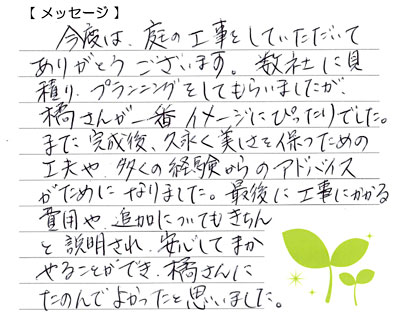 【メッセージ】
今度は、庭の工事をしていただいて
ありがとうございます。数社に見
積り、プランニングをしてもらいましたが、
橘さんが一番イメージにぴったりでした。
また完成後、久永く美しさを保つための
工夫や、多くの経験からのアドバイス
がためになりました。最後に工事にかかる
費用や、追加についてもきちん
と説明され、安心してまか
せることができ、橘さんに
たのんでよかったと思いました。